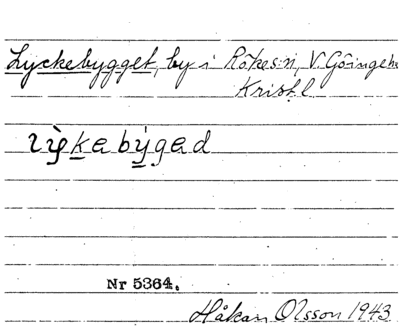 Lyckebygget, by i Rökes sn, V. Göinge hd
Krist. l
lỳkebýged
Nr 5364.
Håkan Olsson 1943